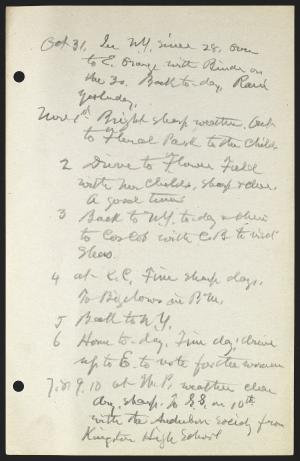 Oct 31, In N.Y. since 28. Over
to E. Orange with Binder on
the 30. Back to-day, Rain
yesterday.
Nov 1st Bright sharp weather. Out
to Floral Park to the Childs
2 Drive to Flower Field
with Mr Childs, sharp & clear.
A good time
3 Back to N.Y. to-day & then
to Cos Cob with C.B. to visit
4 at C.C. Fine sharp days.
To Bigelows in P.M.
5 Back to N.Y.
6 Home to-day. Fine day; drive
up to E. to vote for the women
7, 8, 9, 10 at W.P. weather clear
dry, sharp. To S.S. on 10th
with the Audubon Society from
Kingston High School